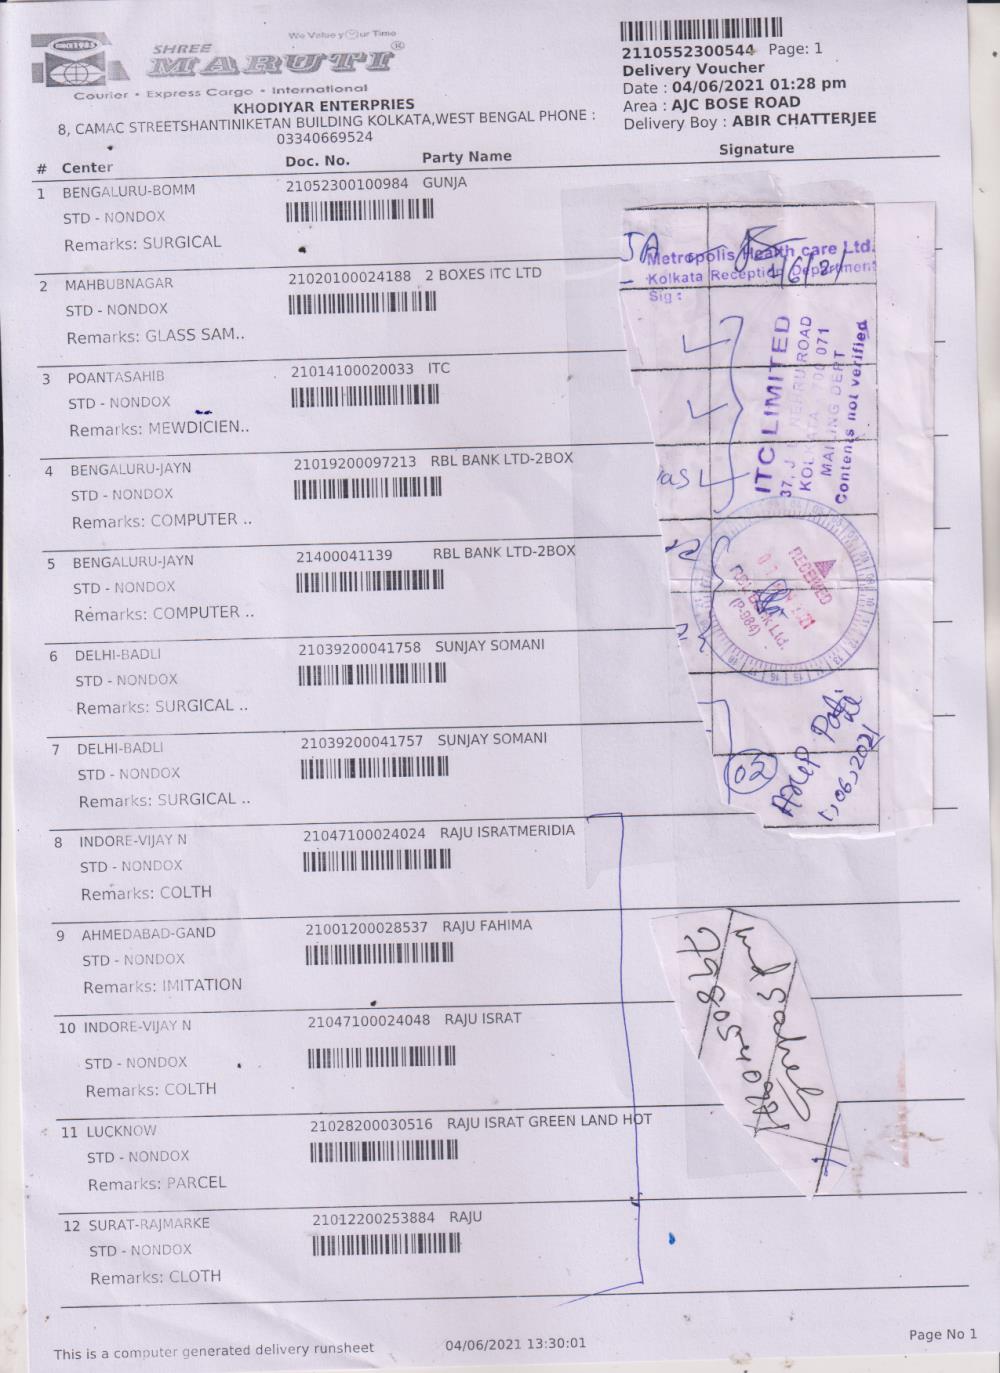 We Value Your Time
SINCE 1985
SHREE
MARUTI ®
Courier • Express Cargo • International
2110552300544 Page: 1
Delivery Voucher
Date : 04/06/2021 01:28 pm
Area : AJC BOSE ROAD
Delivery Boy : ABIR CHATTERJEE
KHODIYAR ENTERPRIES
8, CAMAC STREETSHANTINIKETAN BUILDING KOLKATA,WEST BENGAL PHONE :
03340669524
# Center Doc. No. Party Name Signature
1 BENGALURU-BOMM 21052300100984 GUNJA
STD - NONDOX
Remarks: SURGICAL
Metropolis Health care Ltd.
Kolkata Reception Department
Sig :
2 MAHBUBNAGAR 21020100024188 2 BOXES ITC LTD
STD - NONDOX
Remarks: GLASS SAM..
ITC LIMITED
NEHRU ROAD
KOLKATA
MAILING DEPT
Contents not verified
3 POANTASAHIB 21014100020033 ITC
STD - NONDOX
Remarks: MEWDICIEN..
4 BENGALURU-JAYN 21019200097213 RBL BANK LTD-2BOX
STD - NONDOX
Remarks: COMPUTER ..
5 BENGALURU-JAYN 21400041139 RBL BANK LTD-2BOX
STD - NONDOX
Remarks: COMPUTER ..
RECEIVED
RBL Bank Ltd.
(P-984)
6 DELHI-BADLI 21039200041758 SUNJAY SOMANI
STD - NONDOX
Remarks: SURGICAL ..
7 DELHI-BADLI 21039200041757 SUNJAY SOMANI
STD - NONDOX
Remarks: SURGICAL ..
02
8 INDORE-VIJAY N 21047100024024 RAJU ISRATMERIDIA
STD - NONDOX
Remarks: COLTH
9 AHMEDABAD-GAND 21001200028537 RAJU FAHIMA
STD - NONDOX
Remarks: IMITATION
10 INDORE-VIJAY N 21047100024048 RAJU ISRAT
STD - NONDOX
Remarks: COLTH
11 LUCKNOW 21028200030516 RAJU ISRAT GREEN LAND HOT
STD - NONDOX
Remarks: PARCEL
12 SURAT-RAJMARKE 21012200253884 RAJU
STD - NONDOX
Remarks: CLOTH
This is a computer generated delivery runsheet 04/06/2021 13:30:01 Page No 1